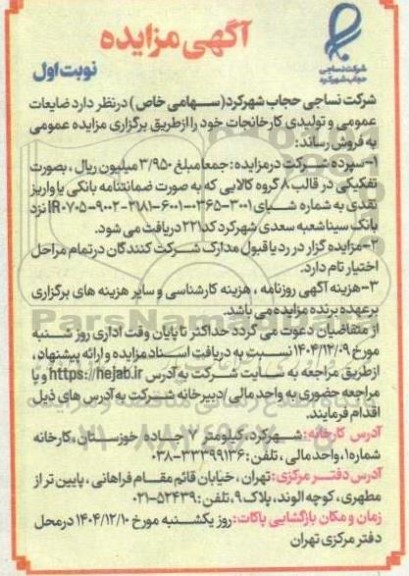 آگهی مزایده
نوبت اول
شرکت نساجی
حجاب شهرکرد
شرکت نساجی حجاب شهرکرد(سهامی خاص) درنظر دارد ضایعات
عمومی و تولیدی کارخانجات خود را ازطریق برگزاری مزایده عمومی
به فروش رساند:
۱-سپرده شرکت درمزایده: جمعا مبلغ ۳/۹۵۰ میلیون ریال ، بصورت
تفکیکی در قالب ۸ گروه کالایی که به صورت ضمانتنامه بانکی یا واریز
نقدی به شماره شبای IR۰۷۰۵-۹۰۰۲-۳۱۸۱-۶۰۰۱-۰۳۶۵-۳۰۰۱ نزد
بانک سینا شعبه سعدی شهرکرد کد۲۲۱ دریافت می شود.
۲-مزایده گزار در رد یا قبول مدارک شرکت کنندگان در تمام مراحل
اختیار تام دارد.
۳-هزینه آگهی روزنامه ، هزینه کارشناسی و سایر هزینه های برگزاری
برعهده برنده مزایده می باشد.
از متقاضیان دعوت می گردد حداکثر تا پایان وقت اداری روز شنبه
مورخ ۱۴۰۴/۱۲/۰۹ نسبت به دریافت اسناد مزایده و ارائه پیشنهاد ،
ازطریق مراجعه به سایت شرکت به آدرس https://hejab.ir و یا
مراجعه حضوری به واحد مالی/دبیرخانه شرکت به آدرس های ذیل
اقدام فرمایند.
آدرس کارخانه: شهرکرد، کیلومتر ۷ جاده خوزستان، کارخانه
شماره۱، واحد مالی ، تلفن: ۳۳۳۹۹۱۳۶-۰۳۸
آدرس دفتر مرکزی: تهران، خیابان قائم مقام فراهانی، پایین تر از
مطهری، کوچه الوند، پلاک ۹، تلفن: ۵۲۴۳۹-۰۲۱
زمان و مکان بازگشایی پاکات: روز یکشنبه مورخ ۱۴۰۴/۱۲/۱۰ درمحل
دفتر مرکزی تهران